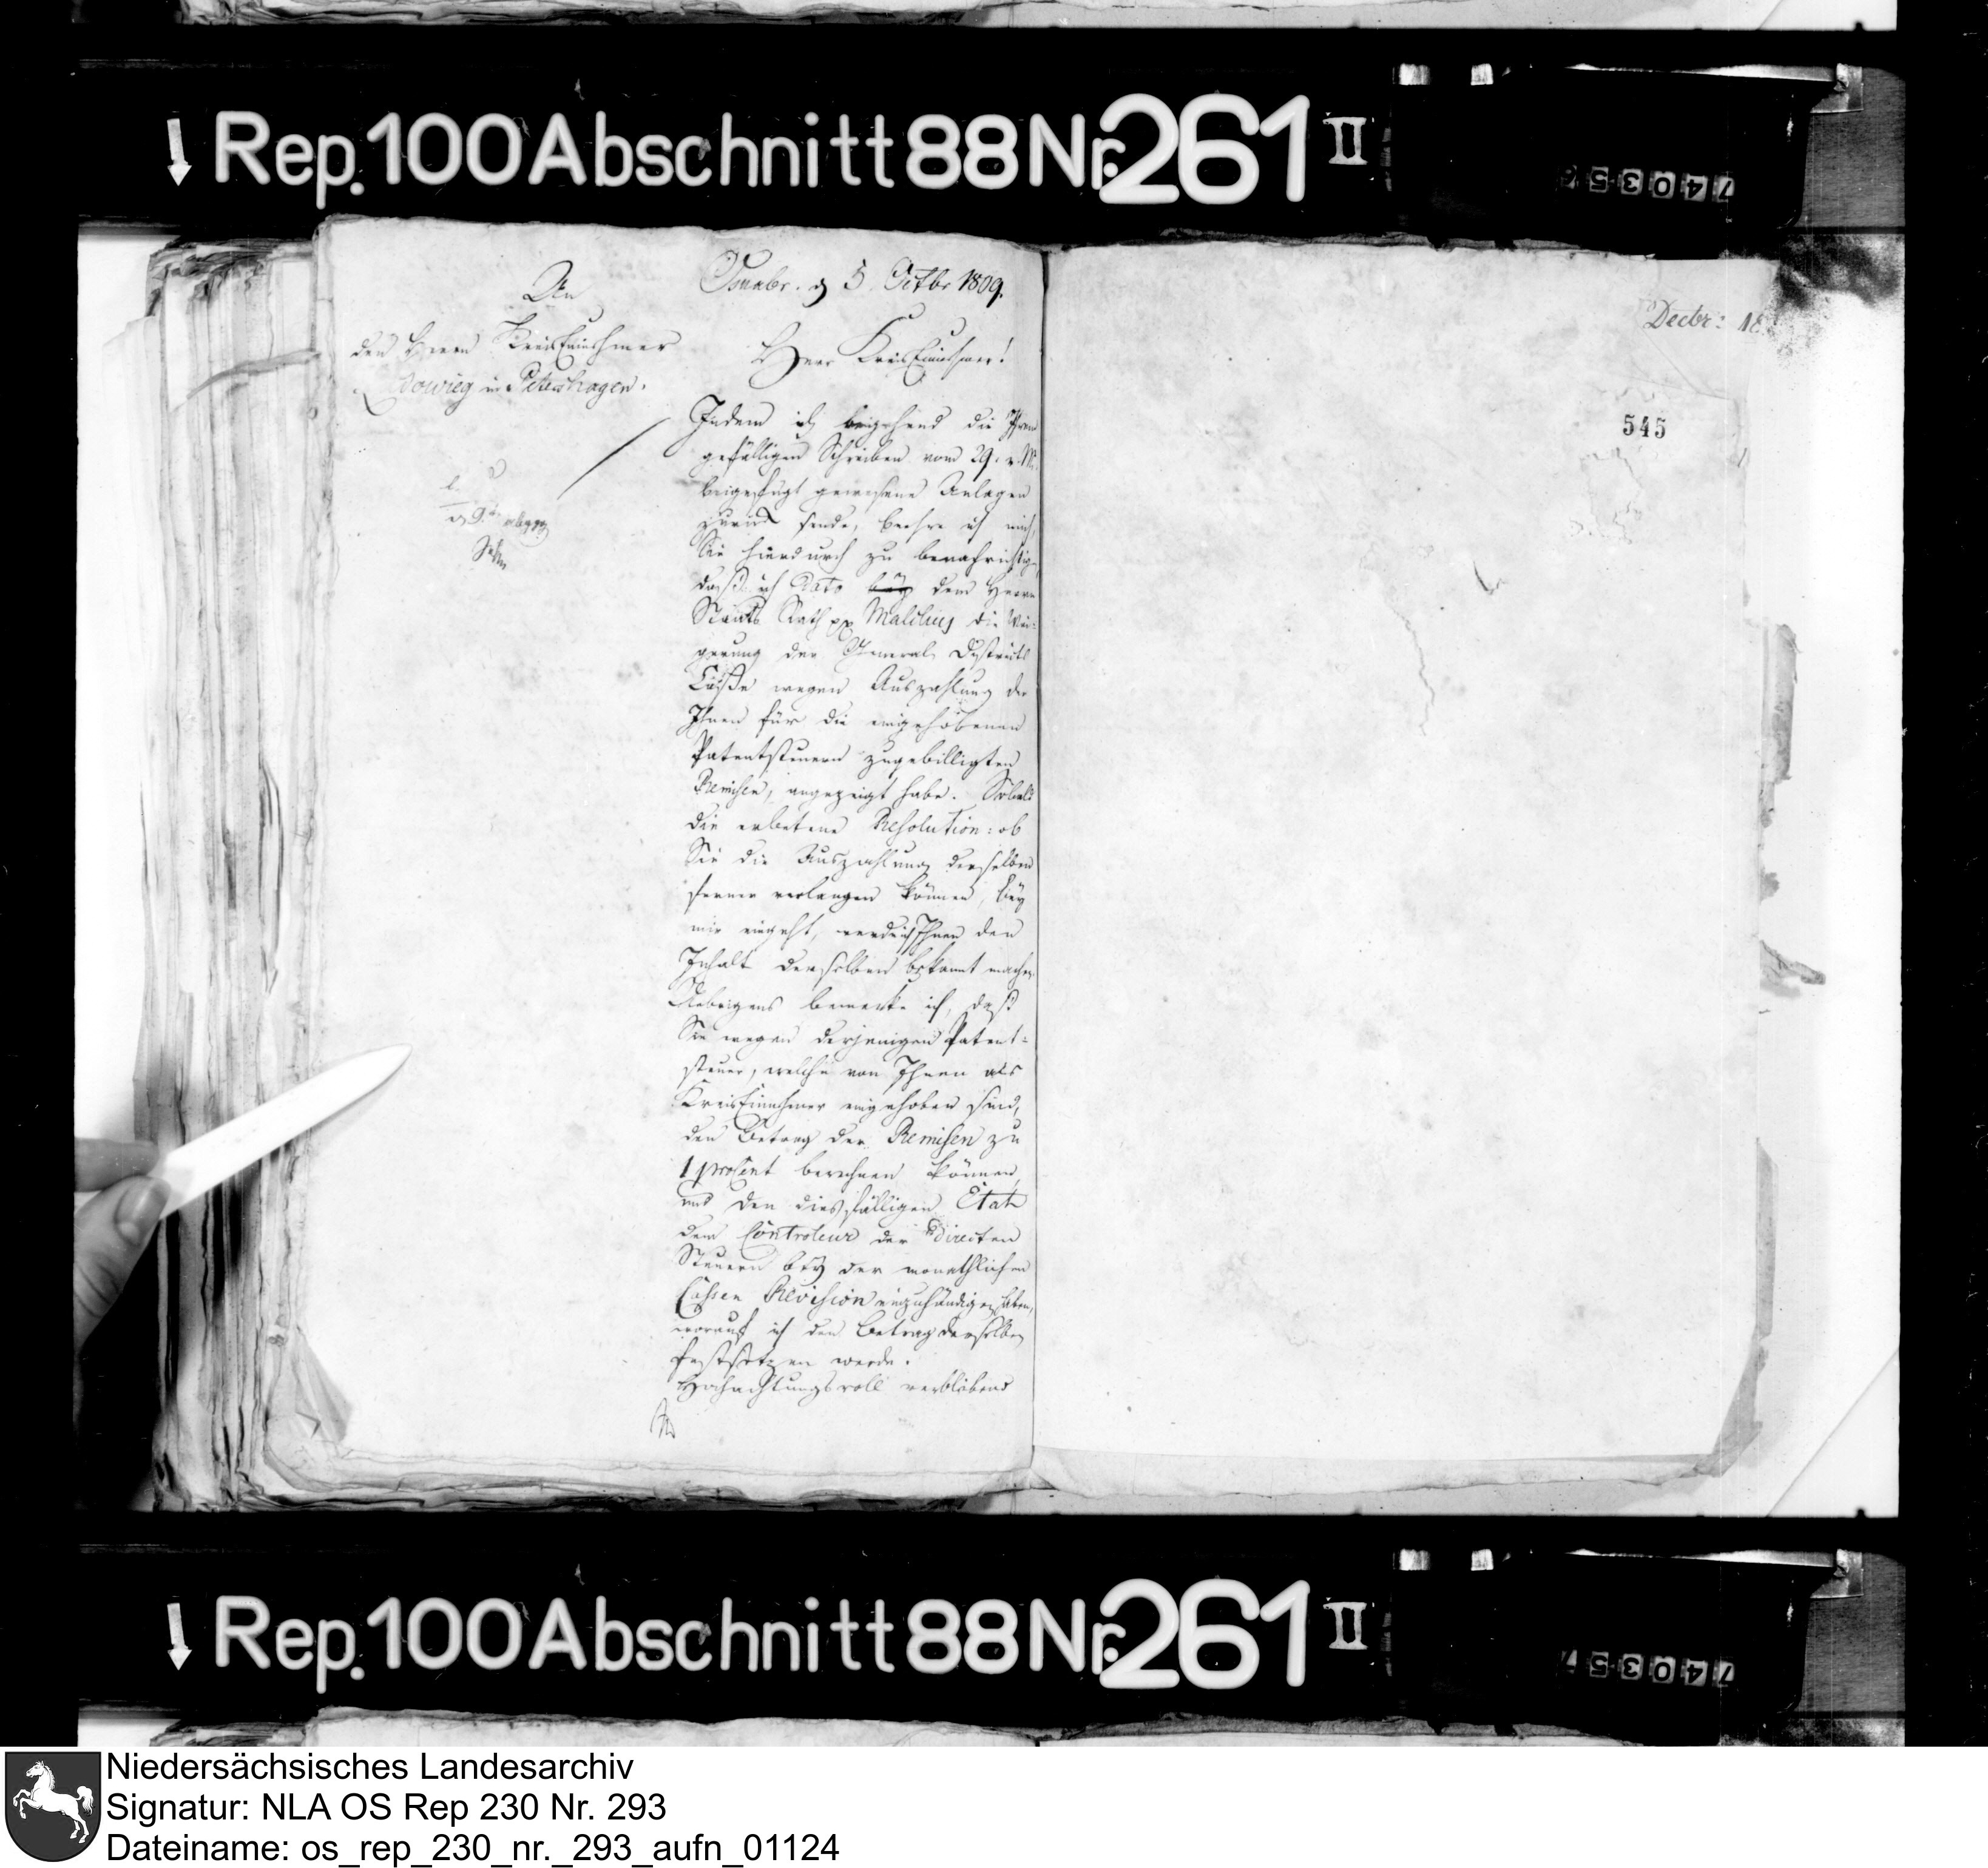 Rep. 100 Abschnitt 88 Nr. 261 II
74035
An
den Herrn KreisEinnehmer
Ludowieg in Petershagen.
Osnabr. d 5. Octbr 1809.
Herr KreisEinnehmer!
Indem ich beigehend die Ihrem
gefälligen Schreiben vom 29. v. M.
beigefügt gewesene Anlagen
zurück sende, beehre ich mich,
Sie hierdurch zu benachrichtigen,
daß ich dato bey dem Herrn
Staats Rath pp Malchus die Wei-
gerung der General Districts
Casse wegen Auszahlung der
Ihnen für die eingehobenen
Patentsteuern zugebilligten
Remisen, angezeigt habe. Sobald
die erbetene Resolution: ob
Sie die Auszahlung derselben
ferner verlangen können, bey
mir eingeht, werde ich Ihnen den
Inhalt derselben bekannt machen.
Uebrigens bemerke ich, daß
Sie wegen derjenigen Patent-
steuer, welche von Ihnen als
KreisEinnehmer eingehoben sind,
den Betrag der Remisen zu
1 procent berechnen können,
und den diesfälligen Etat
dem Controleur der directen
Steuern bey der monathlichen
Cassen Revision einzuhändigen haben,
worauf ich den Betrag derselben
festsetzen werde.
Hochachtungsvoll verbleibend
Decbr: 18
545
Rep. 100 Abschnitt 88 Nr. 261 II
74035
Niedersächsisches Landesarchiv
Signatur: NLA OS Rep 230 Nr. 293
Dateiname: os_rep_230_nr._293_aufn_01124